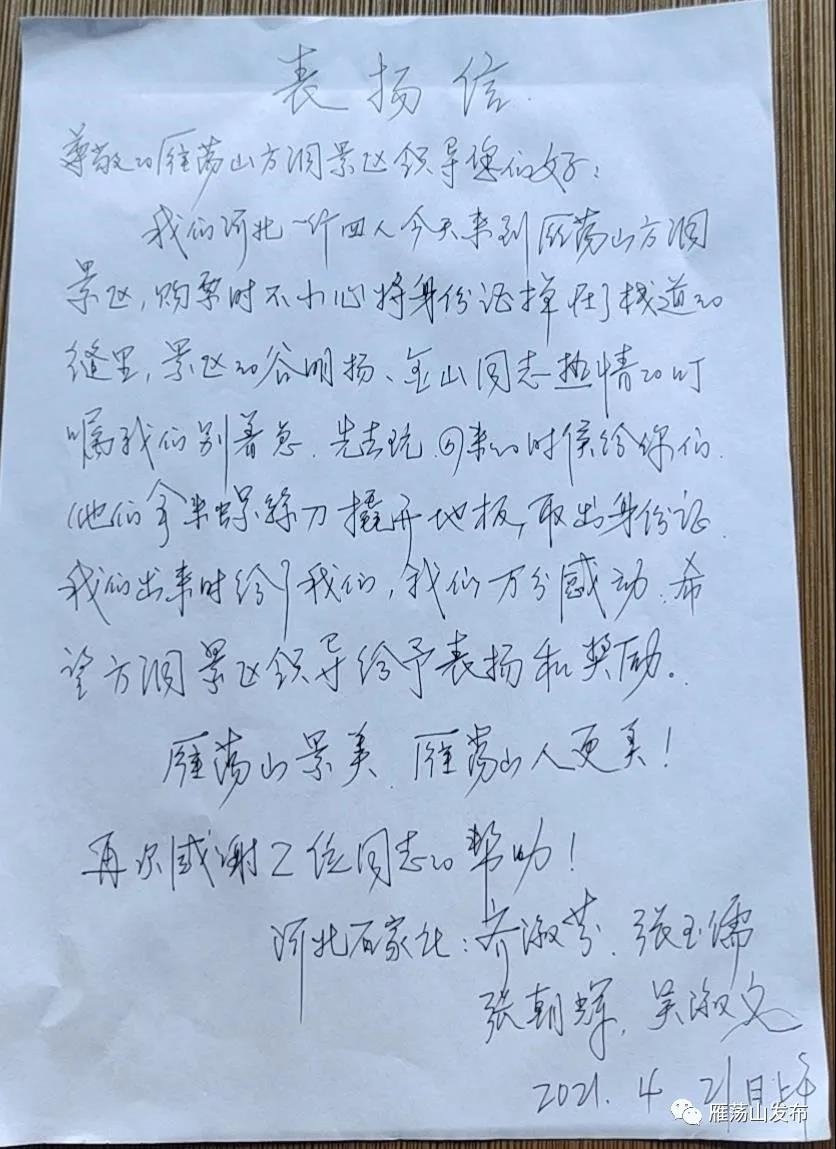 表扬信
尊敬的雁荡山方洞景区领导您们好：
我们河北一行四人今天来到雁荡山方洞
景区，购票时不小心将身份证掉在了栈道的
缝里，景区的谷明扬、金山同志热情的叮
嘱我们别着急.先去玩.回来的时侯给你们.
他们拿来螺丝刀撬开地板，取出身份证.
我们出来时给了我们，我们万分感动.希
望方洞景区领导给予表扬和奖励。
雁荡山景美.雁荡山人更美！
再次感谢2位同志的帮助！
河北石家庄：齐淑芬.张玉儒
张朝辉.吴淑文
2021.4.21日上午
雁荡山发布